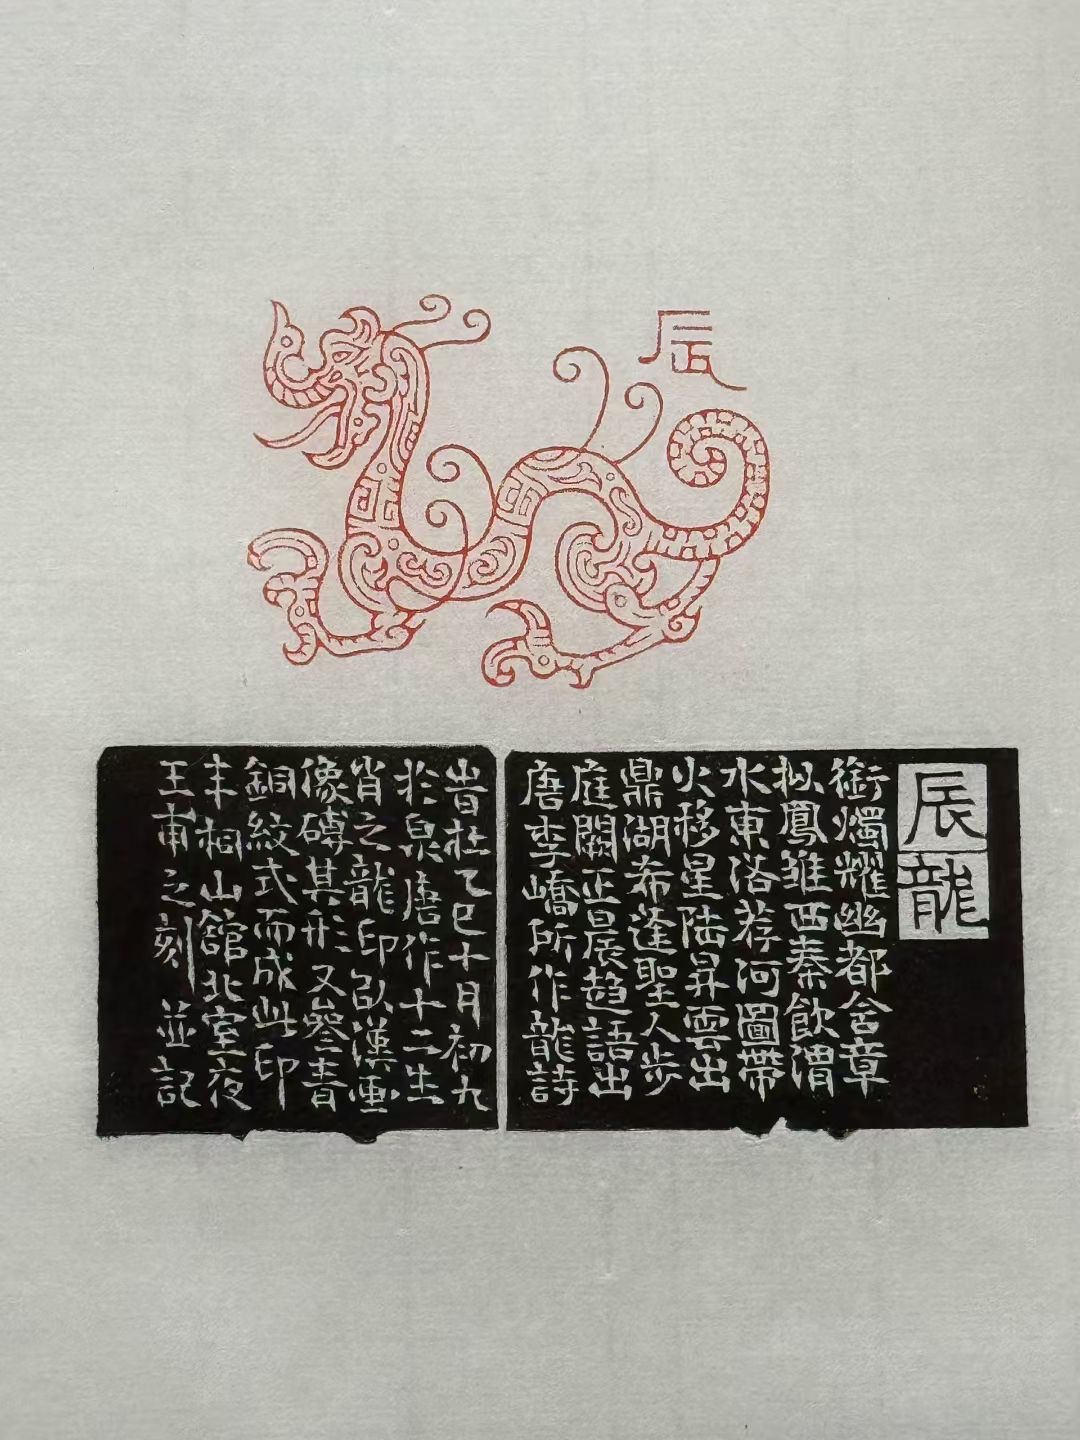 辰
辰龍
銜燭耀幽都含章
拟鳳雛西秦飲渭
水東洛荐河圖帶
火移星陸昇雲出
鼎湖希逢聖人步
庭闕正晨趍語出
唐李嶠所作龍詩
旹在乙巳十月初九
於泉唐作十二生
肖之龍印㕥漢画
像磚其形又參青
銅紋式而成此印
桐山館北室夜
王甫之刻並記